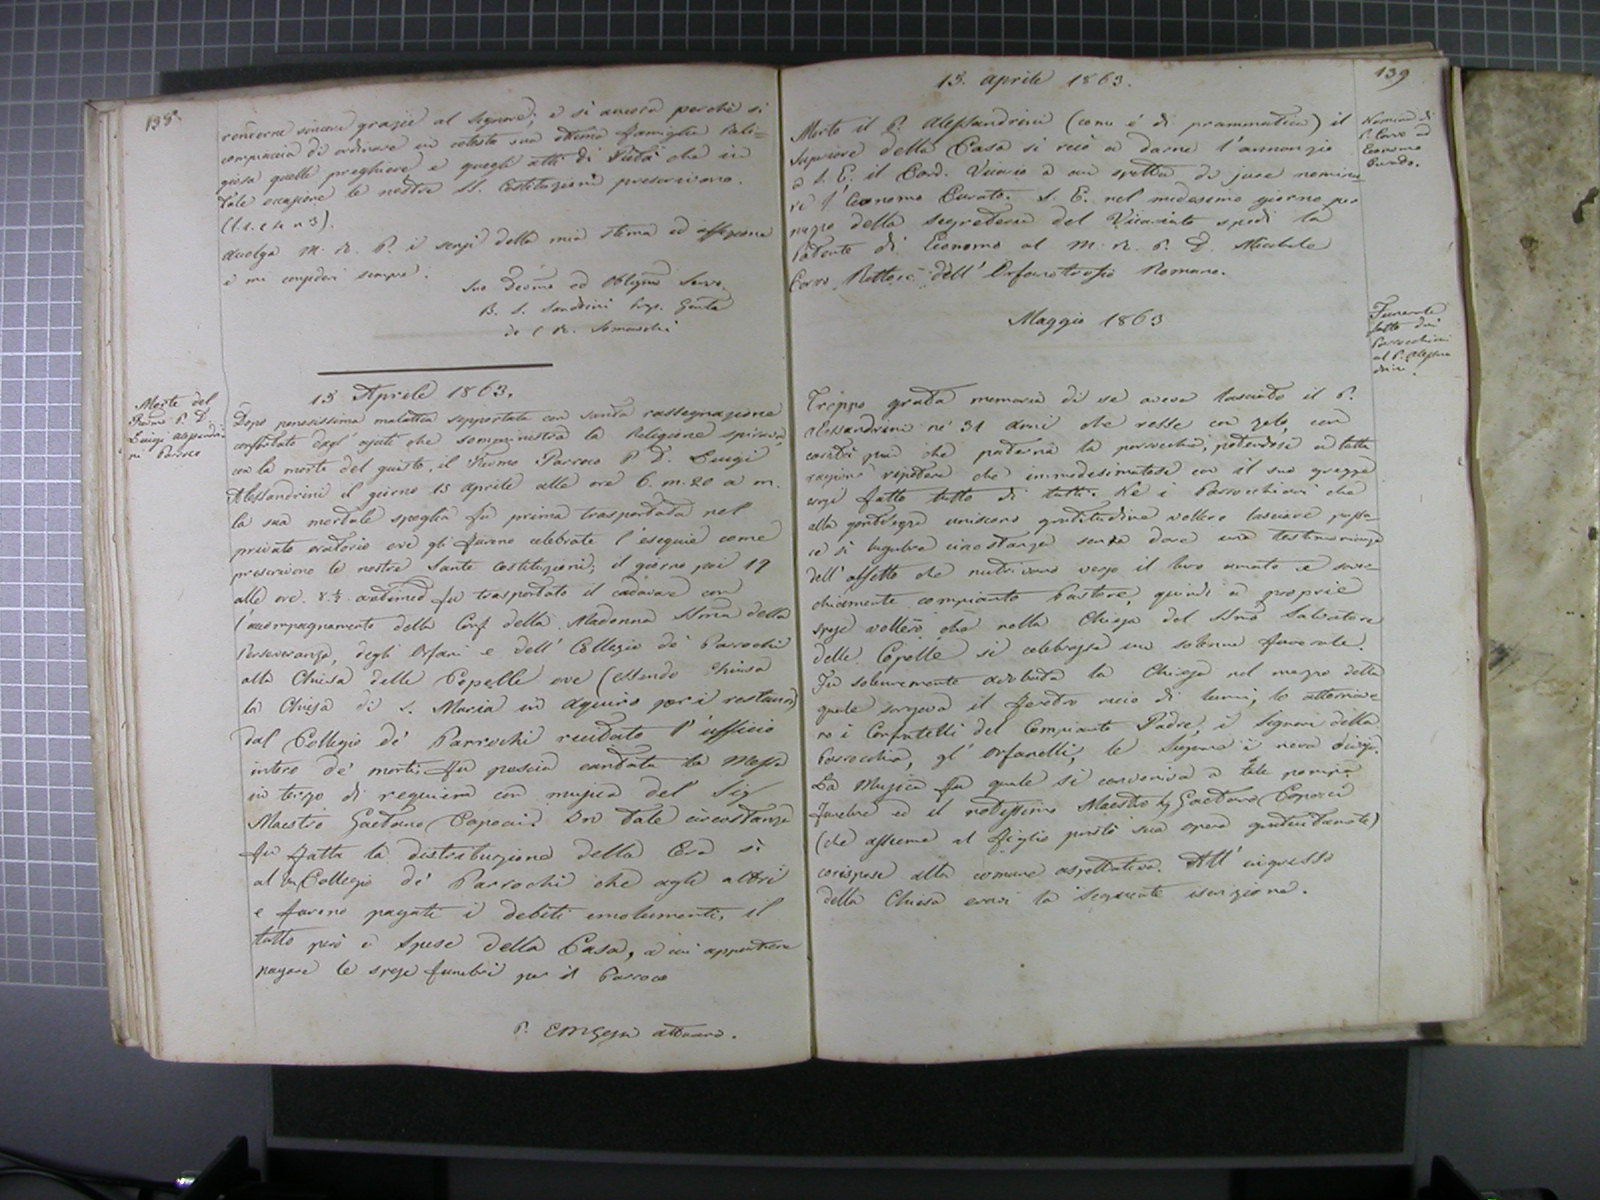 138
renderne sincere grazie al Signore; e si ancora perchè si
compiaccia di ordinare in cotesta sua Famiglia Reli=
giosa quelle preghiere, e quegli atti di Pietà che in
tale occasione le nostre SS. Costituzioni prescrivono.
Accolga M. R. P. i sensi della mia stima ed affezione
e mi consideri sempre.
Suo Devmo ed Obblgmo Servo
B. S. Sandrini Prep. Gnle
de C. R. Somaschi
15 Aprile 1863.
Morte del
P. D.
Luigi Alessandri-
ni Parroco
Dopo penosissima malattia sopportata con santa rassegnazione
confortato dagl' ajuti che somministra la Religione spirava
con la morte del giusto, il Parroco P. D. Luigi
Alessandrini il giorno 15 aprile alle ore 6. m. 20 a m.
la sua mortale spoglia fu prima trasportata nel
privato oratorio ove gli furono celebrate l'esequie come
prescrivono le nostre Sante Costituzioni; il giorno poi 17
alle ore 8.½ antimed fu trasportato il cadavere con
l'accompagnamento della Conf della Madonna SSma della
Perseveranza, degli Orfani e dell' Collegio de' Parrochi
alla Chiesa delle Copelle ove (essendo chiusa
la Chiesa di S. Maria in Aquiro per i restauri)
dal Collegio de' Parrochi recitato l'uffico
intero de' morti, fu poscia cantata la Messa
in terzo di requiem con musica del Sig
Maestro Gaetano Capocci. In tale circostanza
fu fatta la distribuzione della Cera sì
al Collegio de' Parrochi che agli altri
e furono pagati i debiti emolumenti, il
tutto però a spese della Casa, a cui appartiene
pagare le spese funebri per il Parroco
P. attuario.
139
15. Aprile 1863.
Nomina di
P. Corvo ad
Economo
Curato.
Morto il P. Alessandrini (come è di prammatica) il
Superiore della Casa si recò a darne l'annunzio
a S. E. il Card. Vicario a cui spetta di jure nomina-
re l'Economo Curato. S. E. nel medesimo giorno per
mezzo della Segreteria del Vicariato spedì la
Patente di Economo al M. R. P. D. Michele
Corvo Rettore dell' Orfanotrofio Romano.
Maggio 1863
Funerale
fatto dai
Parrocchiani
al P. Alessan
drini.
Troppo grata memoria di se aveva lasciato il P.
Alessandrini ne' 31 anni che resse con zelo, con
carità più che paterna la parrocchia, potendosi a tutta
ragione ripetere che immedesimatosi con il suo gregge
erasi fatto tutto di tutti. Nè i Parrocchiani che
alla gentilezza uniscono gratitudine vollero lasciare passa-
re sì lugubre circostanza senza dare una testimonianza
dell'affetto che nutrivano verso il loro amato e
compianto Pastore, quindi a proprie
spese vollero che nella Chiesa del SSmo Salvatore
delle Copelle si celebrasse un solenne funerale.
Fu solennemente addobbata la Chiesa nel mezzo della
quale sorgeva il feretro ricco di lumi, lo attornia-
no i Confratelli del Compianto Padre, i Signori della
Parrocchia, gl' Orfanelli, le Signore in nera divisa.
La Musica fu quale si conveniva a tale pompa
funebre ed il notissimo Maestro Gaetano Capocci
(che assieme al figlio prestò sua opera gratuitamente)
corrispose alla comune aspettativa. All' ingresso
della Chiesa eravi la seguente iscrizione.